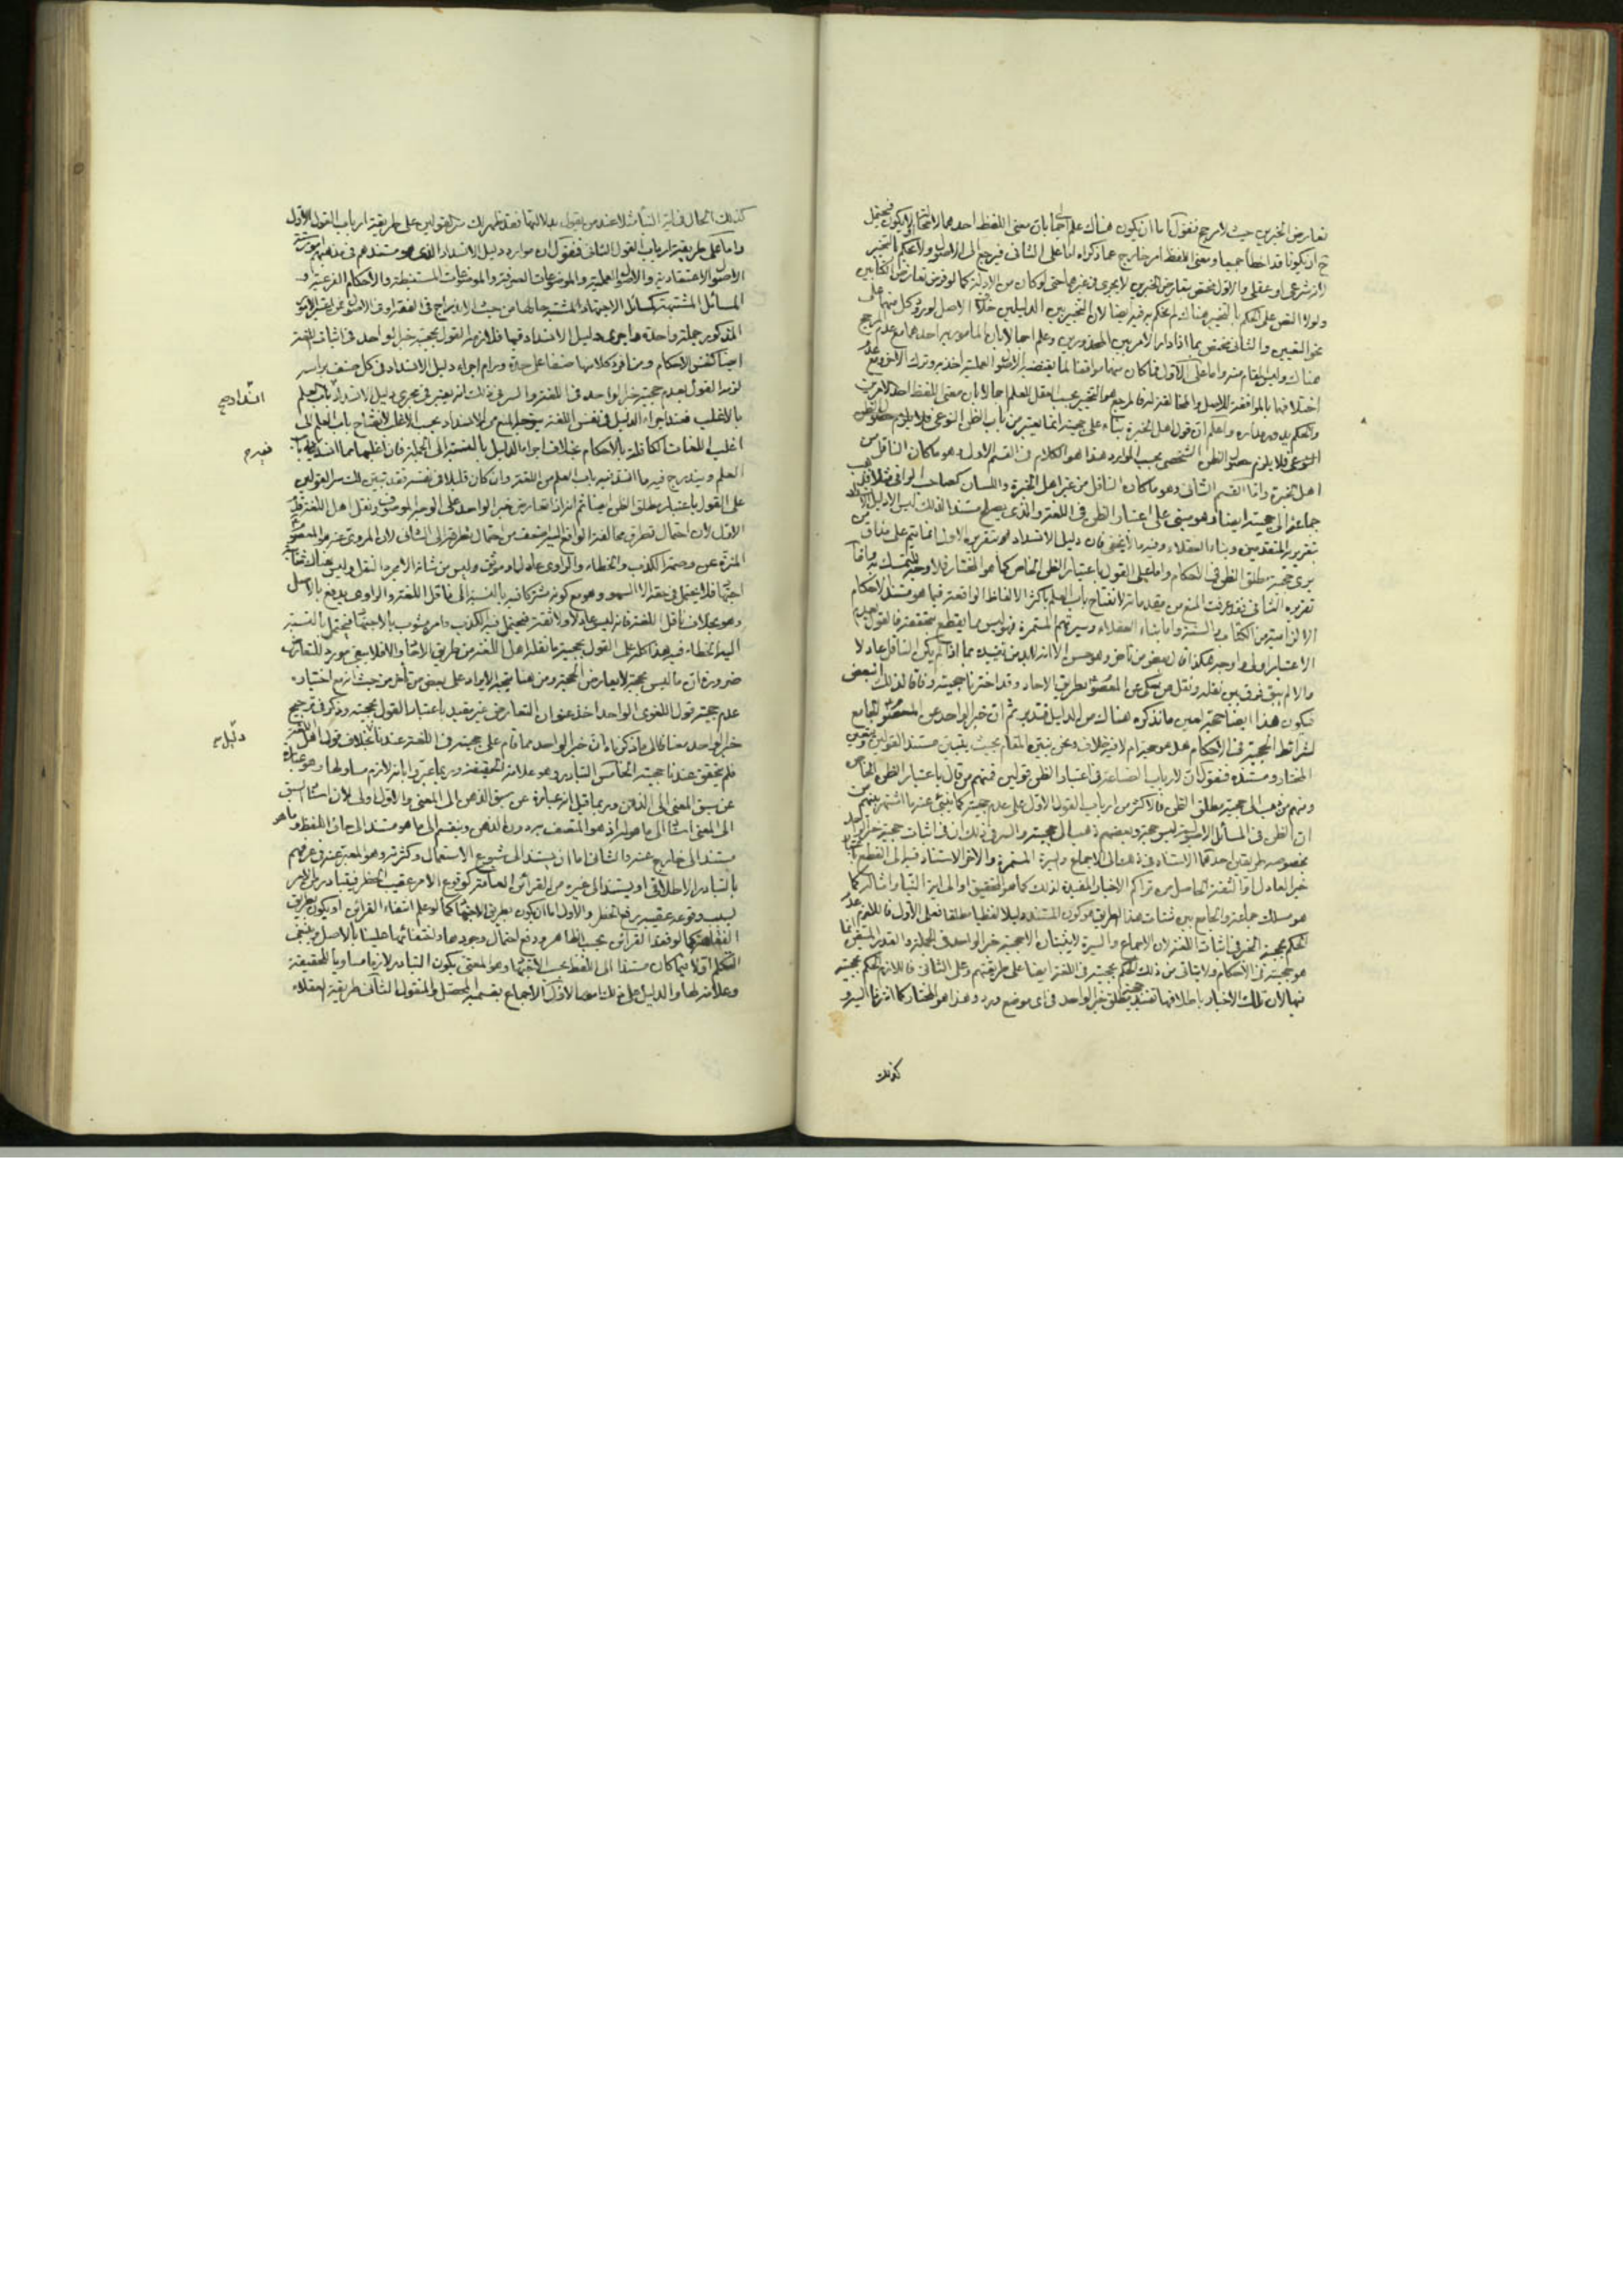 تعارض الخبرين حيث لا مرجح فنقول اما ان يكون هناك علم اجمالي بان معنى اللفظ احدهما
ان يكونا قد اخطأ جميعا ومعنى اللفظ امر خارج عما ذكراه اما على الثاني فيرجع الى الاصول ولا نحكم بالتخيير
لانه شرعي او عقلي والاول مختص بتعارض الخبرين لا يجري في غيرها حتى لو كان من الادلة كما لو فرض تعارض الكتابين
ولولا النص على الحكم بالتخيير هناك لم نحكم به فيه ايضا لان التخيير بين الدليلين خلاف الاصل
نحو التعيين والثاني مختص بما اذا دار الامر بين المحذورين وعلم اجمالا بان المأمور به احدهما مع عدم المرجح
هناك وليس المقام منه واما على الاول فما كان منهما موافقا لما يقتضيه الاصول العملية اخذ به وترك الاخر ومع
اختلافهما بالموافقة للاصل والمخالفة له فالمرجع هو التخيير بحسب العقل للعلم اجمالا بان معنى اللفظ احد الامرين
واعلم ان قول اهل الخبرة بناء على حجيته انما يعتبر من باب الظن النوعي
النوعي فلا يلزم حصول الظن الشخصي بحسب الموارد هذا هو الكلام في القسم الاول وهو ما كان الناقل من
اهل الخبرة واما القسم الثاني وهو ما كان الناقل من غير اهل الخبرة واللسان
جماعة الى حجيته ايضا وهو مبني على اعتبار الظن في اللغة والذي يصلح مستندا لذلك ليس الا دليل الانسداد
بتقريريه المتقدمين وبناء العقلاء وفيه ما لا يخفى فان دليل الانسداد هو بتقريره الاول انما يتم على مذاق من
يرى حجية مطلق الظن في الاحكام واما على القول باعتبار الظن الخاص كما هو المختار فلا وجه للتمسك به واما
تقريره الثاني فقد عرفت المنع من مقدماته لانفتاح باب العلم باكثر الالفاظ الواقعة فيما هو مستند الاحكام
الالزامية من الكتاب والسنة واما بناء العقلاء وسيرتهم المستمرة فهو ليس مما يقطع بتحققه فالقول بعدم
الاعتبار اولى واوجه هكذا قال بعض من تأخر وهو حسن الا انه لا بد من تقييده بما اذا لم يكن الناقل عادلا
والا لم يبق فرق بين نقله ونقل من يحكي عن المعصوم بطريق الاحاد وقد اخترنا حجيته وفاقا لذلك البعض
فيكون هذا ايضا حجة لعين ما نذكره هناك من الدليل فتدبر ثم ان خبر الواحد عن المعصوم الجامع
لشرائط الحجية في الاحكام هل هو حجة ام لا فيه خلاف ونحن نبين المقام بحيث يتبين مستند القولين وتعيين
المختار ومستنده فنقول ان لارباب الصناعة في اعتبار الظن قولين فمنهم من قال باعتبار الظن الخاص
ومنهم من ذهب الى حجية مطلق الظن فالاكثر من ارباب القول الاول على عدم حجيته كما ينبئ عنه ما اشتهر بينهم من
ان الظن في المسائل الاصولية ليس حجة وبعضهم ذهب الى حجيته والسر في ذلك ان في اثبات حجية خبر الواحد
بخصوصه طريقين احدهما الاستناد في ذلك الى الاجماع والسيرة المستمرة والاخر الاستناد فيه الى القطع بحجية
خبر العادل او الثقة الحاصل من تراكم الاخبار المفيدة لذلك كما هو التحقيق او الى اية النبأ وامثالها كما
هو مسلك جماعة والجامع بين شتات هذا الطريق هو كون المستند دليلا لفظيا مطلقا فعلى الاول فاللازم عدم
الحكم بحجية الخبر في اثبات اللغة لان الاجماع والسيرة لا يثبتان الا حجية خبر الواحد في الجملة والقدر المتيقن انما
هو حجيته في الاحكام ولا يتأتى من ذلك الحكم بحجيته في اللغة ايضا على طريقتهم وعلى الثاني فاللازم الحكم بحجيته
فيها لان تلك الاخبار باطلاقها تفيد حجية مطلق خبر الواحد في اي موضع ورد وهذا هو المختار كما اشرنا اليه و
كذلك
كذلك الحال في اية النبأ مثلا عند من يقول بدلالتها فقد ظهر لك سر القولين على طريقة ارباب القول الاول
واما على طريقة ارباب القول الثاني فنقول ان موارد دليل الانسداد الذي هو مستندهم في مذهبهم امور ستة
الاصول الاعتقادية والاصول العملية والموضوعات الصرفة والموضوعات المستنبطة والاحكام الفرعية و
المسائل المشتبهة كمسائل الاجتهاد المشتبه حالها من حيث الاندراج في الفقه او في الاصول
المذكور جملة واحدة واجرى دليل الانسداد فيها فلازمه القول بحجية خبر الواحد في اثبات اللغة
ايضا كنفس الاحكام ومن افرد كلا منها صنفا على حدة ورام اجراء دليل الانسداد في كل صنف براسه
لزمه القول بعدم حجية خبر الواحد في اللغة والسر في ذلك انه يعتبر في مجرى دليل الانسداد انسداد باب العلم
بالاغلب فعند اجراء الدليل في نفس اللغة يتوجه المنع من الانسداد بحسب الاغلب لانفتاح باب العلم الى
اغلب اللغات الكافلة بالاحكام بخلاف اجراء الدليل بالنسبة الى الجملة فان اغلبها مما انسد فيه باب
العلم ويندرج فيه ما انسد فيه باب العلم من اللغة وان كان قليلا في نفسه فقد تبين لك سر القولين
على القول باعتبار مطلق الظن ايضا ثم انه اذا تعارض خبر الواحد على الوجه الموصوف ونقل اهل اللغة قدم
الاول لان احتمال تطرق مخالفة الواقع اليه اضعف من احتمال تطرقه الى الثاني لان المروي عنه هو المعصوم
المنزه عن وصمة الكذب والخطاء والراوي عادل او موثق وليس من شأنه الا مجرد النقل وليس هناك شائبة
اجتهاد فلا يحتمل في حقه الا السهو وهو مع كونه مشتركا فيه بالنسبة الى ناقل اللغة والراوي يدفع بالاصل
وهو بخلاف ناقل اللغة فانه ليس عادلا ولا ثقة فيحتمل فيه الكذب وامره مشوب بالاجتهاد فيحتمل بالنسبة
اليه الخطاء فيه هذا كله على القول بحجية ما نقله اهل اللغة من طريق الاحاد والا فلا يبقى مورد للتعارض
ضرورة ان ما ليس بحجة لا يعارض الحجة ومن هنا يتجه الايراد على بعض من تأخر من حيث انه مع اختياره
عدم حجية قول اللغوي الواحد اخذ عنوان التعارض غير مقيد باعتبار القول بحجيته وذكر في ترجيح
خبر الواحد مضافا الى ما ذكرناه ان خبر الواحد مما قام على حجيته في اللغة عندنا بخلاف قول اهل اللغة
فلم يتحقق عندنا حجيته الخامس التبادر وهو علامة الحقيقة وربما عبروا بانه لازم مساو لها وهو عبارة
عن سبق المعنى الى الذهن وربما قيل انه عبارة عن سبق الذهن الى المعنى والاول اولى لان اسناد السبق
الى المعنى اسناد الى ما هو له اذ هو المتصف به دون الذهن وينقسم الى ما هو مستند الى حاق اللفظ وما هو
مستند الى خارج عنه والثاني اما ان يستند الى شيوع الاستعمال وكثرته وهو المعبر عنه في عرفهم
بالتبادر الاطلاقي او يستند الى غيره من القرائن العامة كوقوع الامر عقيب الحظر فيتبادر من الامر
بسبب وقوعه عقيبه رفع الحظر والاول اما ان يكون بطريق الاجتهاد كما لو علم انتفاء القرائن او يكون بطريق
الفقاهة كما لو فقد القرائن بحسب الظاهر ودفع احتمال وجودها واختفائها علينا بالاصل وينبغي
التكلم اولا فيما كان مستندا الى اللفظ بحسب الاجتهاد وهو المعنى بكون التبادر لازما مساويا للحقيقة
وعلامة لها والدليل على ذلك امور الاول الاجماع بقسميه المحصل والمنقول الثاني طريقة العقلاء